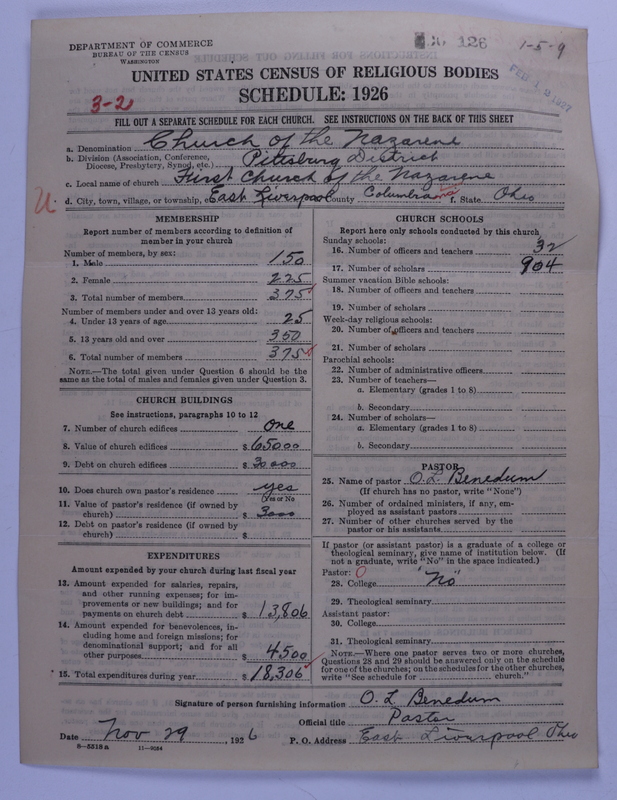 DEPARTMENT OF COMMERCE
BUREAU OF THE CENSUS
WASHINGTON
126
1-5-9
FEB 12 1927
UNITED STATES CENSUS OF RELIGIOUS BODIES
SCHEDULE: 1926
3-2
FILL OUT A SEPARATE SCHEDULE FOR EACH CHURCH. SEE INSTRUCTIONS ON THE BACK OF THIS SHEET
a. Denomination Church of the Nazarene
b. Division (Association, Conference, Diocese, Presbytery, Synod, etc.) Pittsburg District
c. Local name of church First Church of the Nazarene
U
d. City, town, village, or township, e East Liverpool County Columbiana f. State Ohio
MEMBERSHIP
Report number of members according to definition of
member in your church
Number of members, by sex:
1. Male 150
2. Female 225
3. Total number of members 375
Number of members under and over 13 years old:
4. Under 13 years of age 25
5. 13 years old and over 350
6. Total number of members 375
NOTE.—The total given under Question 6 should be
same as the total of males and females given under Question 3.
CHURCH BUILDINGS
See instructions, paragraphs 10 to 12
7. Number of church edifices One
8. Value of church edifices $ 65000
9. Debt on church edifices $ 30000
10. Does church own pastor's residence yes
(Yes or No
11. Value of pastor's residence (if owned by
church) $ 3000
12. Debt on pastor's residence (if owned by
church) $
EXPENDITURES
Amount expended by your church during last fiscal year
13. Amount expended for salaries, repairs,
and other running expenses; for im-
provements or new buildings; and for
payments on church debt $ 13,806
14. Amount expended for benevolences, in-
cluding home and foreign missions; for
denominational support; and for all
other purposes $ 4500
15. Total expenditures during year $ 18,306
CHURCH SCHOOLS
Report here only schools conducted by this church
Sunday schools:
16. Number of officers and teachers 32
17. Number of scholars 904
Summer vacation Bible schools:
18. Number of officers and teachers
19. Number of scholars
Week-day religious schools:
20. Number of officers and teachers
21. Number of scholars
Parochial schools:
22. Number of administrative officers
23. Number of teachers—
a. Elementary (grades 1 to 8)
b. Secondary
24. Number of scholars—
a. Elementary (grades 1 to 8)
b. Secondary
PASTOR
25. Name of pastor O. L. Benedum
(If church has no pastor, write "None")
26. Number of ordained ministers, if any, em-
ployed as assistant pastors
27. Number of other churches served by the
pastor or his assistants
If pastor (or assistant pastor) is a graduate of a college or
theological seminary, give name of institution below. (If
not a graduate, write "No" in the space indicated.)
Pastor: O
28. College "No"
29. Theological seminary
Assistant pastor:
30. College
31. Theological seminary
NOTE.—Where one pastor serves two or more churches,
Questions 28 and 29 should be answered only on the schedule
for one of the churches; on the schedules for the other churches,
write "See schedule for church."
Signature of person furnishing information O. L. Benedum
Official title Pastor
Date Nov 29, 1926 P. O. Address East Liverpool Ohio
8-5518a 11-9084